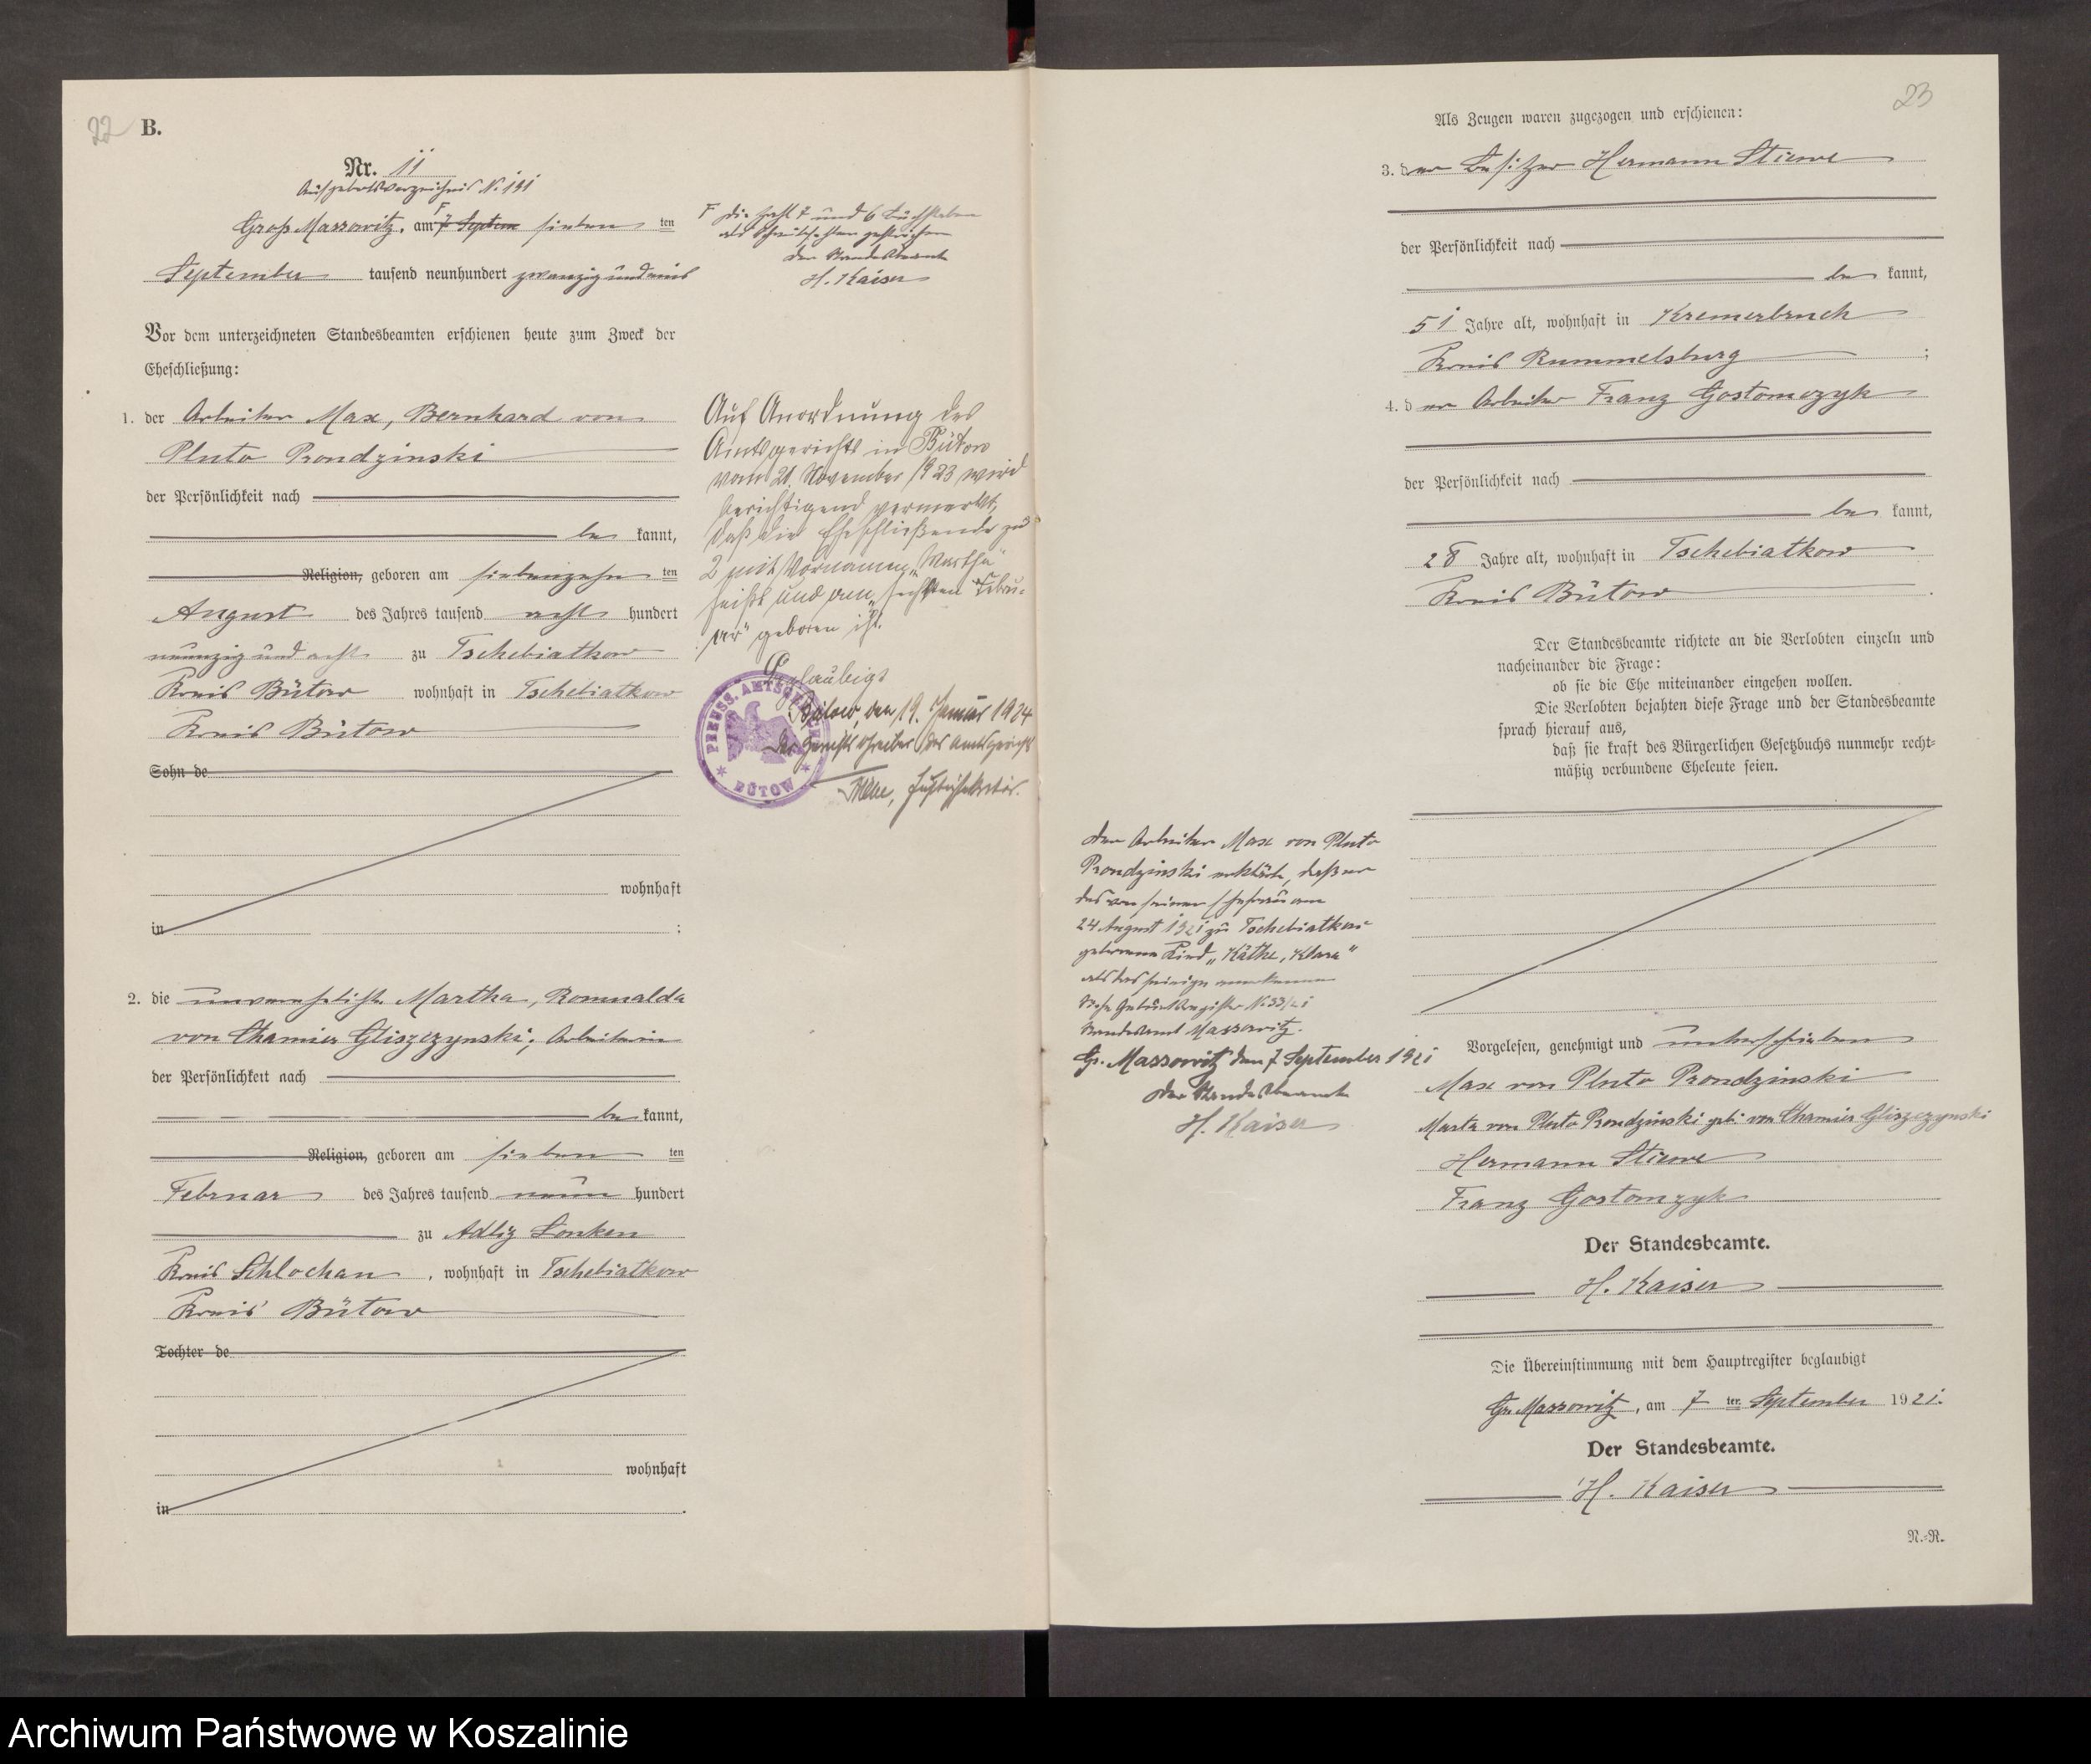 22 B.
Nr. 11
Aufgebotsverzeichnis N. 191
Groß Massowitz, am F 7 Septem sieben ten
September tausend neunhundert zwanzig und eins
Vor dem unterzeichneten Standesbeamten erschienen heute zum Zweck der
Eheschließung:
1. der Arbeiter Max, Bernhard von
Pluto Prondzinski
der Persönlichkeit nach
be kannt,
Religion, geboren am siebenzehn ten
August des Jahres tausend acht hundert
neunzig und acht zu Tschebiatkow
Kreis Bütow wohnhaft in Tschebiatkow
Kreis Bütow
Sohn de
wohnhaft
in ;
2. die unverehelichte Martha, Romualda
von Chamier Gliszczynski; Arbeiterin
der Persönlichkeit nach
be kannt,
Religion, geboren am sieben ten
Februar des Jahres tausend neun hundert
zu Adlig Lonken
Kreis Schlochau, wohnhaft in Tschebiatkow
Kreis Bütow
Tochter de
wohnhaft
in .
F die Zahl 7 und 6 Buchstaben
als Schreibfehler gestrichen
Der Standesbeamte
H. Kaiser
Auf Anordnung des
Amtsgerichts in Bütow
vom 21. November 1923 wird
berichtigend vermerkt,
daß die Eheschließende zu
2 mit Vornamen „Martha"
heißt und am „sechsten Febru-
ar" geboren ist.
Beglaubigt
Bütow, den 19. Januar 1924
Der Gerichtsschreiber des Amtsgerichts
Justizsekretär.
PREUSS. AMTSGERICHT
* BÜTOW *
23
Als Zeugen waren zugezogen und erschienen:
3. der Besitzer Hermann Stiewe
der Persönlichkeit nach
be kannt,
51 Jahre alt, wohnhaft in Kremerbruch
Kreis Rummelsburg ;
4. der Arbeiter Franz Gostomczyk
der Persönlichkeit nach
be kannt,
28 Jahre alt, wohnhaft in Tschebiatkow
Kreis Bütow .
Der Standesbeamte richtete an die Verlobten einzeln und
nacheinander die Frage:
ob sie die Ehe miteinander eingehen wollen.
Die Verlobten bejahten diese Frage und der Standesbeamte
sprach hierauf aus,
daß sie kraft des Bürgerlichen Gesetzbuchs nunmehr recht-
mäßig verbundene Eheleute seien.
Der Arbeiter Max von Pluto
Prondzinski erklärte, daß er
das von seiner Ehefrau am
24 August 1921 zu Tschebiatkow
geborene Kind „Käthe, Klara"
als das seinige anerkenne
Geburtsregister N. 33/21
Standesamt Massowitz.
Gr. Massowitz den 7 September 1921
Der Standesbeamte
H. Kaiser
Vorgelesen, genehmigt und unterschrieben
Max von Pluto Prondzinski
Marta von Pluto Prondzinski geb. von Chamier Gliszczynski
Hermann Stiewe
Franz Gostomzyk
Der Standesbeamte.
H. Kaiser
Die Übereinstimmung mit dem Hauptregister beglaubigt
Gr. Massowitz, am 7 ten September 1921.
Der Standesbeamte.
H. Kaiser
N.-R.
Archiwum Państwowe w Koszalinie